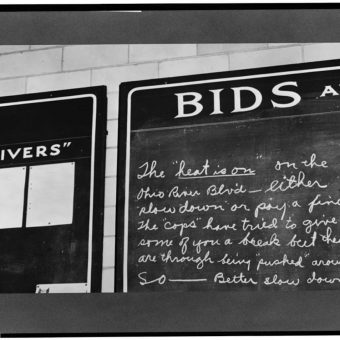 IVERS"
BIDS A
The "heat is on" on the
Ohio River Blv'd — either
"slow down" or pay a fine
The "cops" have tried to give
some of you a break but the
are through being "pushed" arou
So — Better slow down